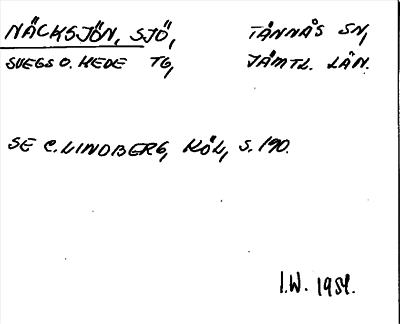 NÄCKSJÖN, SJÖ, TÄNNÄS SN,
SVEGS O. HEDE TG, JÄMTL. LÄN.
SE C. LINDBERG, KÖL, S. 190.
I.W. 1954.